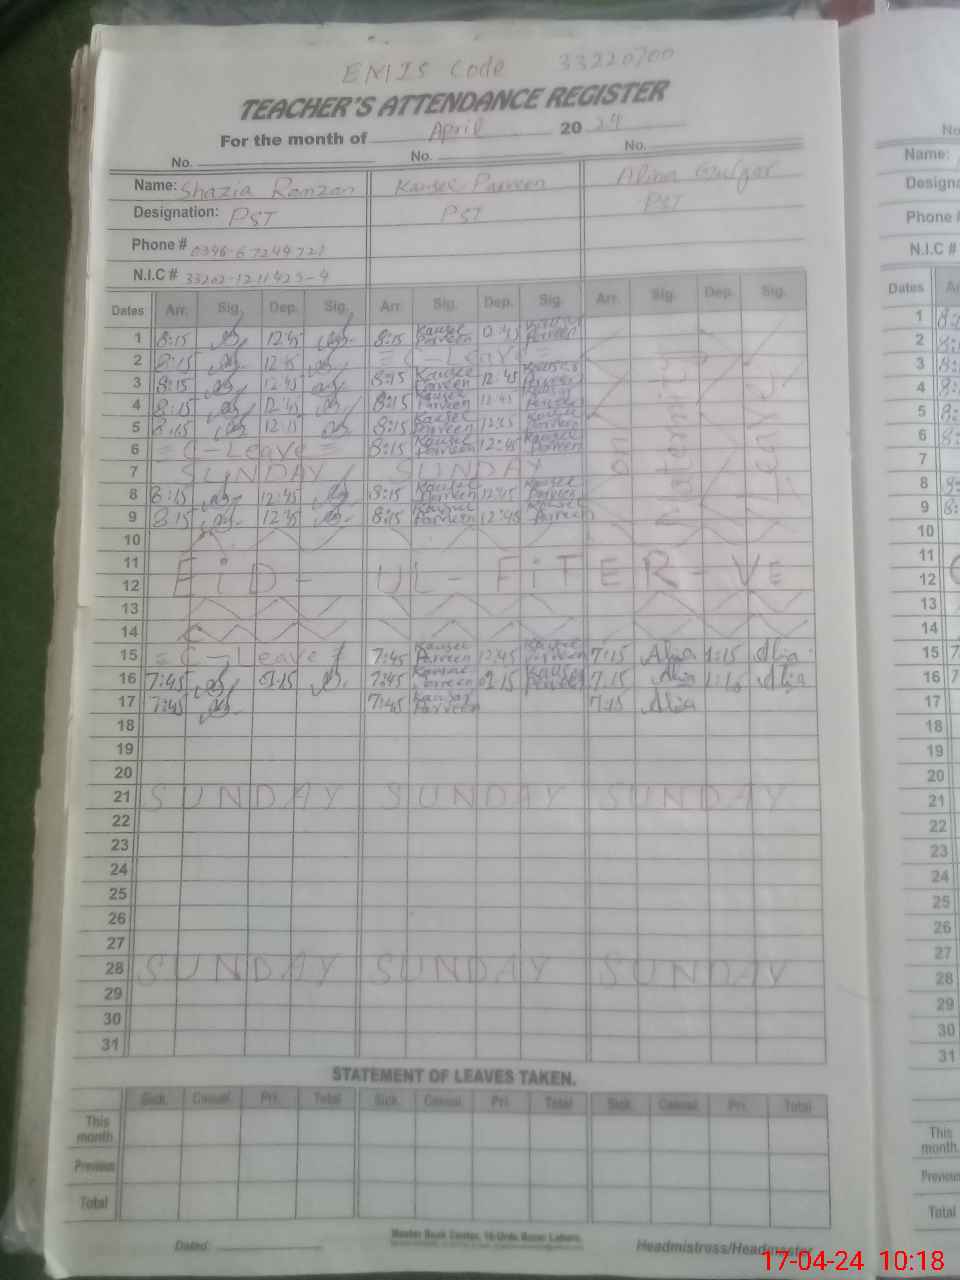 EMIS Code 33220700
TEACHER'S ATTENDANCE REGISTER
For the month of April 20 24
No. No. No.
Name: Shazia Ramzan Kausel Parveen Alina Gulzar
Designation: PST PST PST
Phone #
N.I.C #
Dates Arr. Sig. Dep. Sig. Arr. Sig. Dep. Sig. Arr. Sig. Dep. Sig.
1 8:15 12:45 8:15 Kausel Parveen 12:45 Kausel Parveen
2 8:15 12:45 = C-Leave =
3 8:15 12:45 8:15 Kausel Parveen 12:45 Kausel Parveen
4 8:15 12:45 8:15 Kausel Parveen 12:45 Kausel Parveen
5 8:15 12:45 8:15 Kausel Parveen 12:45 Kausel Parveen
6 = C-Leave = 8:15 Kausel Parveen 12:45 Kausel Parveen
on Maternity Leave
7 SUNDAY SUNDAY
8 8:15 12:45 8:15 Kausel Parveen 12:45 Kausel Parveen
9 8:15 12:45 8:15 Kausel Parveen 12:45 Kausel Parveen
10
11
12 EiD - UL - FiTER - VE
13
14
15 = C-Leave = 7:45 Kausel Parveen 12:45 Kausel Parveen 7:15 Alia 1:15 Alia
16 7:45 01:15 7:45 Kausel Parveen 01:15 Kausel Parveen 7:15 Alia 1:15 Alia
17 7:45 7:45 Kausel Parveen 7:15 Alia
18
19
20
21 SUNDAY SUNDAY SUNDAY
22
23
24
25
26
27
28 SUNDAY SUNDAY SUNDAY
29
30
31
STATEMENT OF LEAVES TAKEN.
Sick. Casual. Pri. Total Sick. Casual. Pri. Total Sick. Casual. Pri. Total
This month
Previous
Total
Dated:
Master Book Center, 16-Urdu Bazar Lahore.
Headmistress/Headmaster
No.
Name:
Designa
Phone #
N.I.C #
Dates
1
2
3
4
5
6
7
8
9
10
11
12
13
14
15
16
17
18
19
20
21
22
23
24
25
26
27
28
29
30
31
This month
Previous
Total
17-04-24 10:18